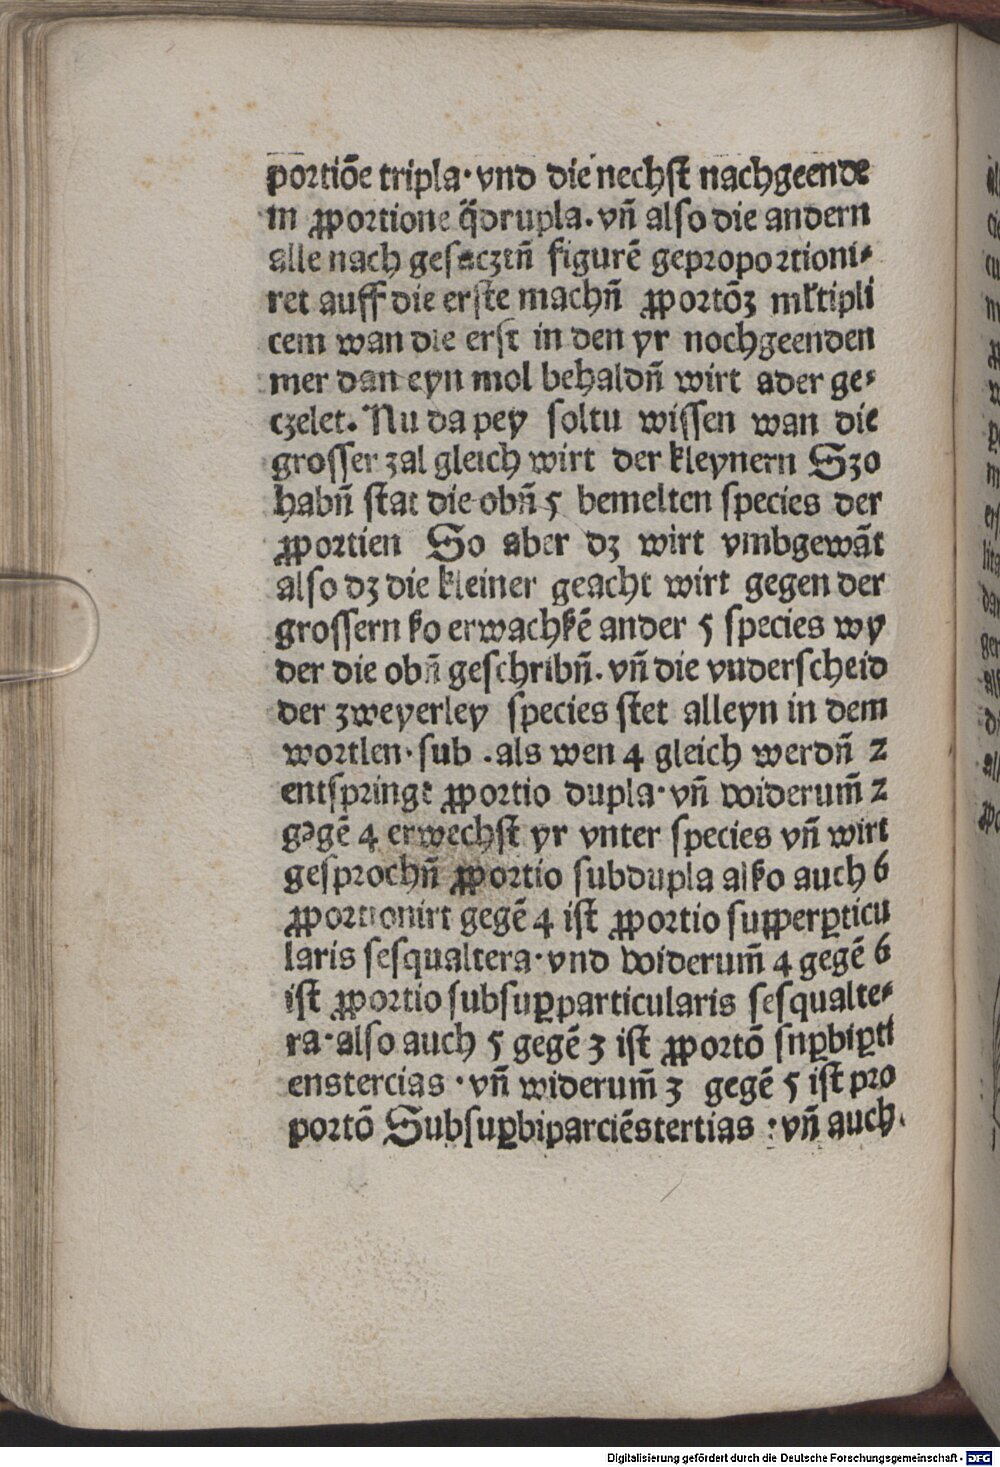 portiōe tripla· vnd die nechst nachgeende
in ꝓportione q̈drupla. vn̄ also die andern
alle nach gesaczttn̄ figurē geproportioni⸗
ret auff die erste machn̄ ꝓportōꝫ ml̄tipli
cem wan die erst in den yr nochgeenden
mer dan eyn mol behaldn̄ wirt ader ge⸗
czelet. Nu da pey soltu wissen wan die
grosser zal gleich wirt der kleynern Szo
habn̄ stat die obn̄ 5 bemelten species der
ꝓportien So aber dꝫ wirt vmbgewāt
also dꝫ die kleiner geacht wirt gegen der
grossern ßo erwachßē ander 5 species wy
der die obn̄ geschribn̄. vn̄ die vnderscheid
der zweyerley species stet alleyn in dem
wortlen· sub .als wen 4 gleich werdn̄ 2
entspringt ꝓportio dupla· vn̄ widerum̄ 2
gꝫgē 4 erwechst yr vnter species vn̄ wirt
gesprochn̄ ꝓportio subdupla alßo auch 6
ꝓportionirt gegē 4 ist ꝓportio suꝑperꝑticu
laris sesqualtera· vnd widerum̄ 4 gegē 6
ist ꝓportio subsuꝑparticularis sesqualte⸗
ra· also auch 5 gegē 3 ist ꝓportō snꝑbiꝑti
enstercias · vn̄ widerum̄ 3 gegē 5 ist pro
portō Subsuꝑbiparciēstertias : vn̄ auch.
Digitalisierung gefördert durch die Deutsche Forschungsgemeinschaft - DFG